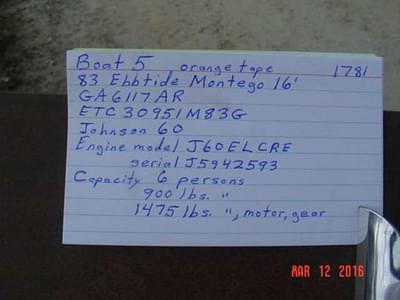 Boat 5 orange tape 1781
83 Ebbtide Montego 16'
GA6117AR
ETC30951M83G
Johnson 60
Engine model J60ELCRE
serial J5942593
Capacity 6 persons
900 lbs. "
1475 lbs. ", motor, gear
MAR 12 2016